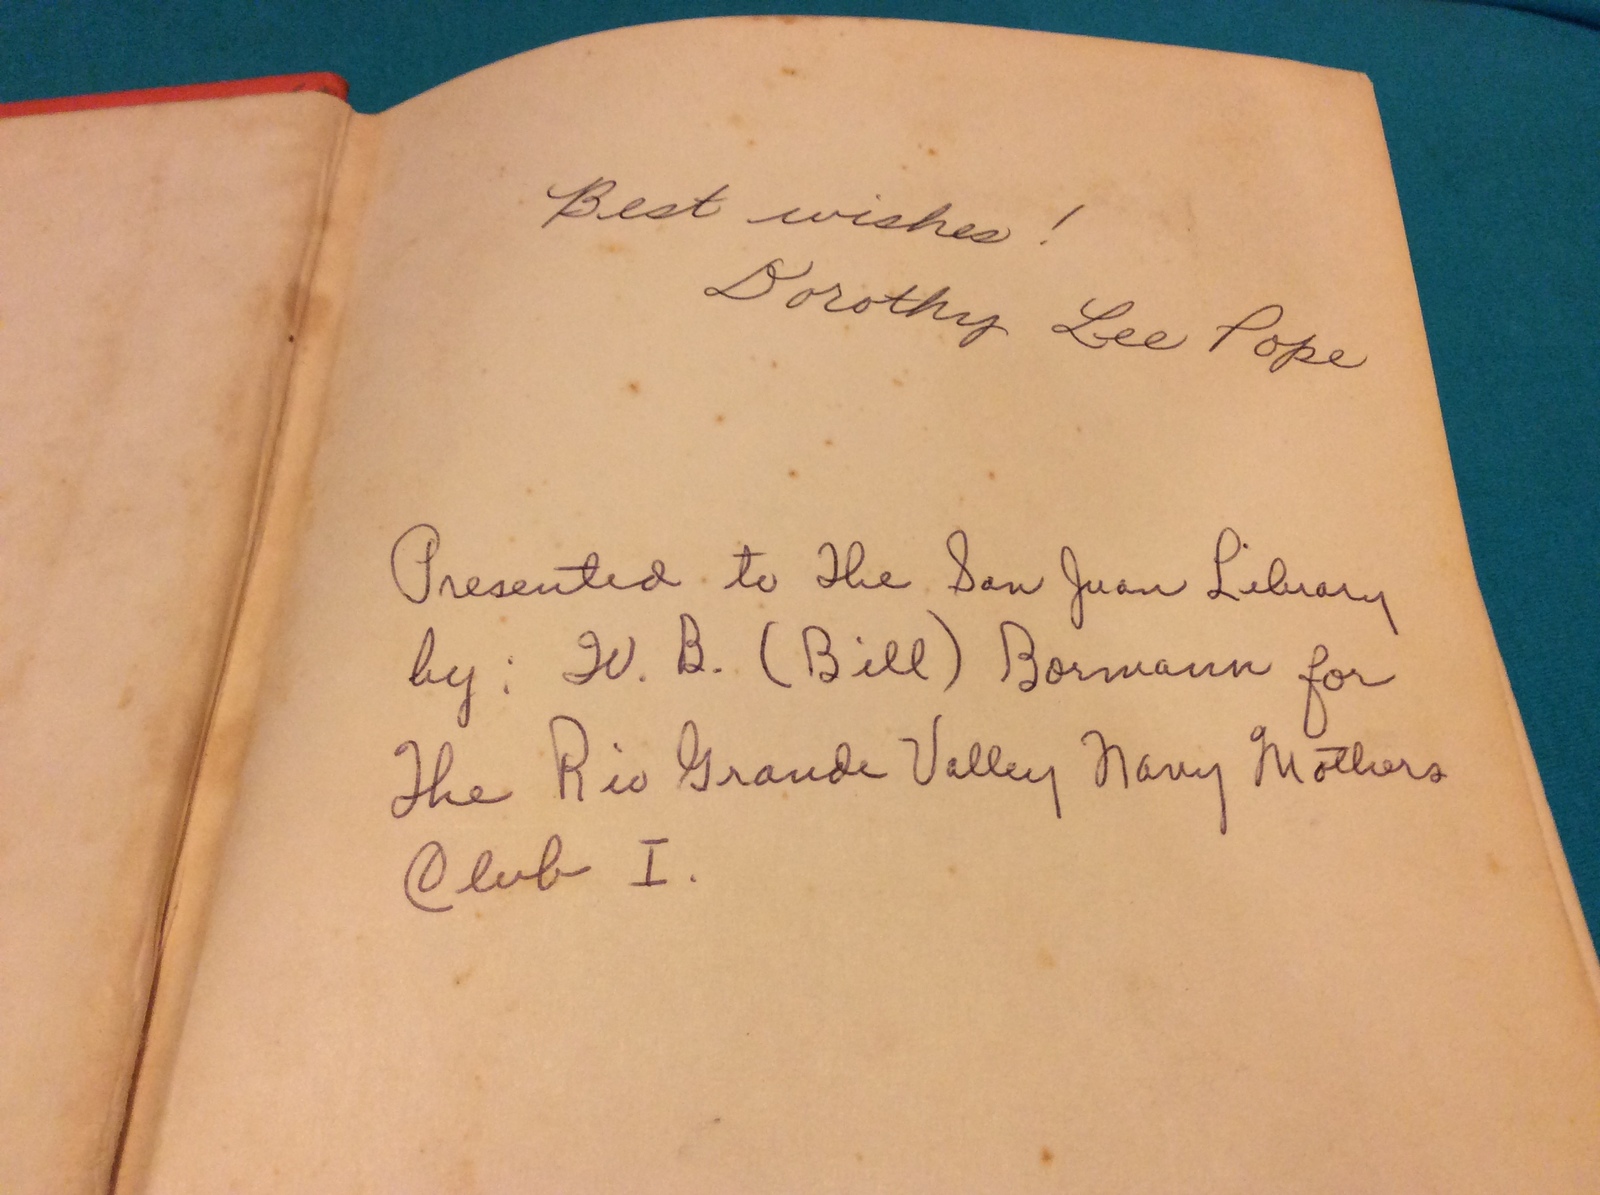 Best wishes!
Dorothy Lee Pope
Presented to The San Juan Library
by: W. B. (Bill) Bormann for
The Rio Grande Valley Navy Mothers
Club I.